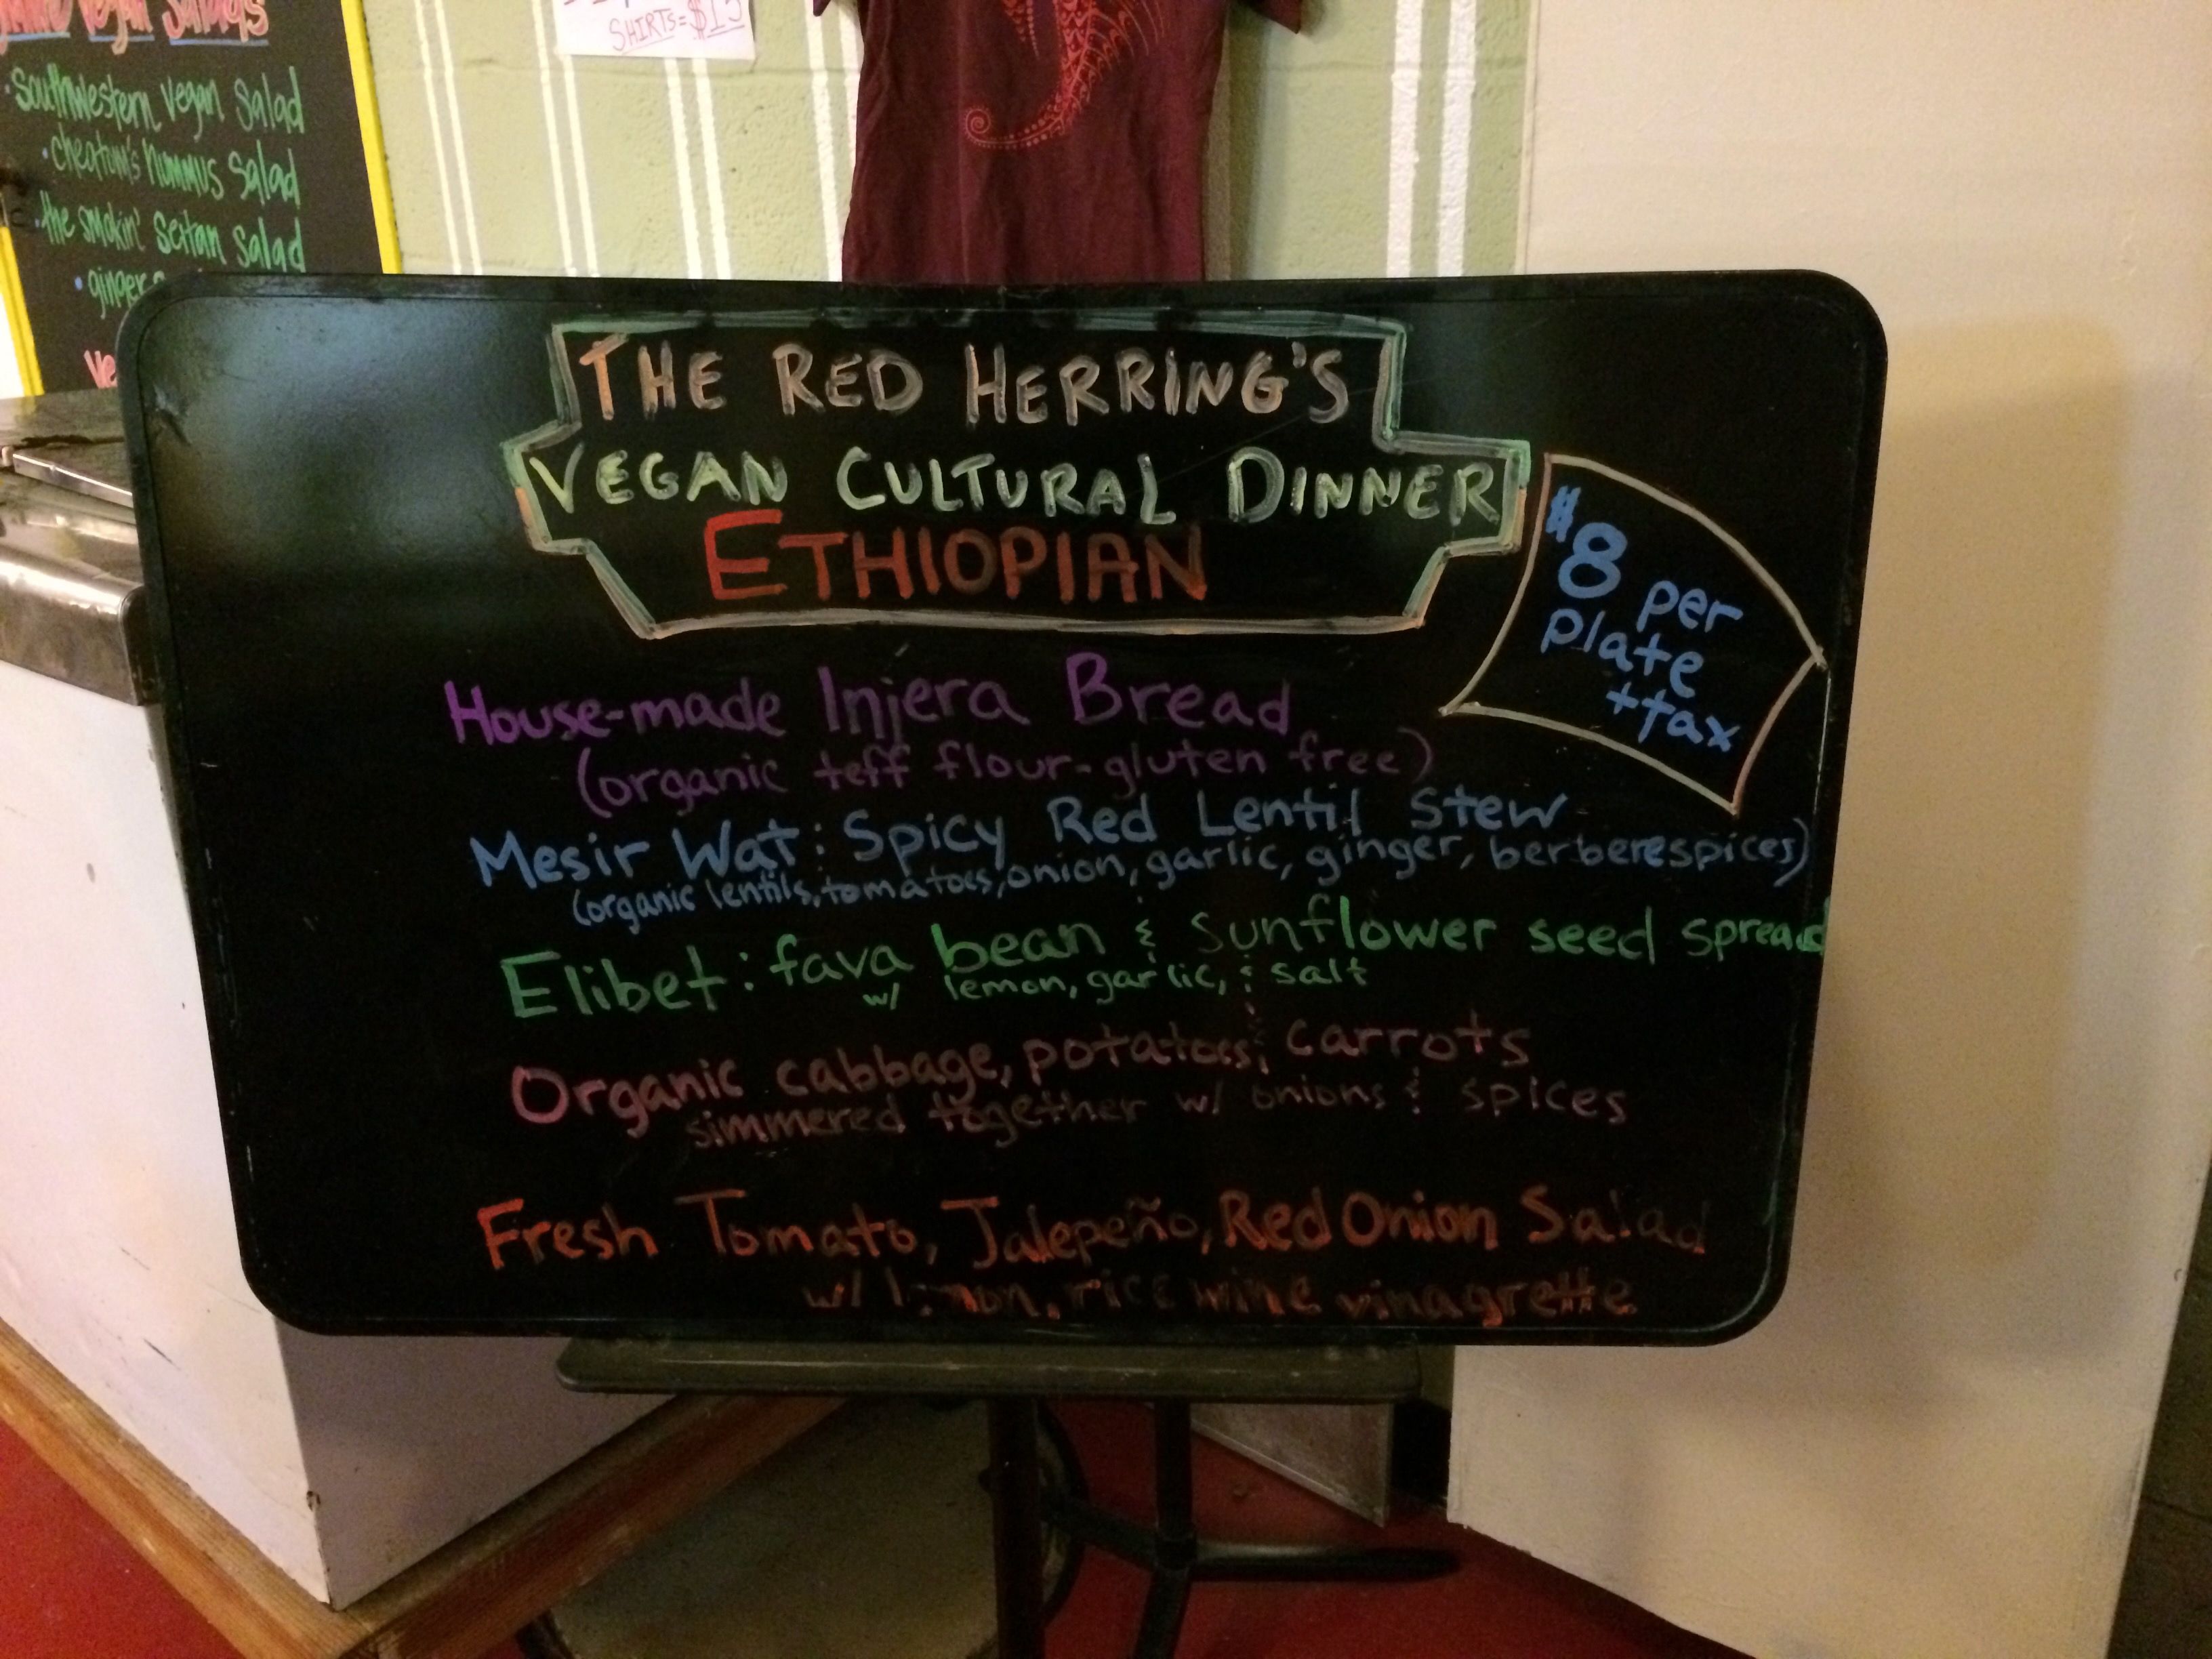 Vegan Salads
• Southwestern Vegan Salad
• cheatum's hummus Salad
• the smokin' Seitan Salad
• ginger
SHIRTS = $15
THE RED HERRING'S
VEGAN CULTURAL DINNER
ETHIOPIAN
$8 per
plate
+tax
House-made Injera Bread
(organic teff flour-gluten free)
Mesir Wat: Spicy Red Lentil Stew
(organic lentils, tomatoes, onion, garlic, ginger, berbere spices)
Elibet: fava bean & sunflower seed spread
w/ lemon, garlic, & salt
Organic cabbage, potatoes, & carrots
simmered together w/ onions & spices
Fresh Tomato, Jalepeño, Red Onion Salad
w/ lemon, rice wine vinagrette